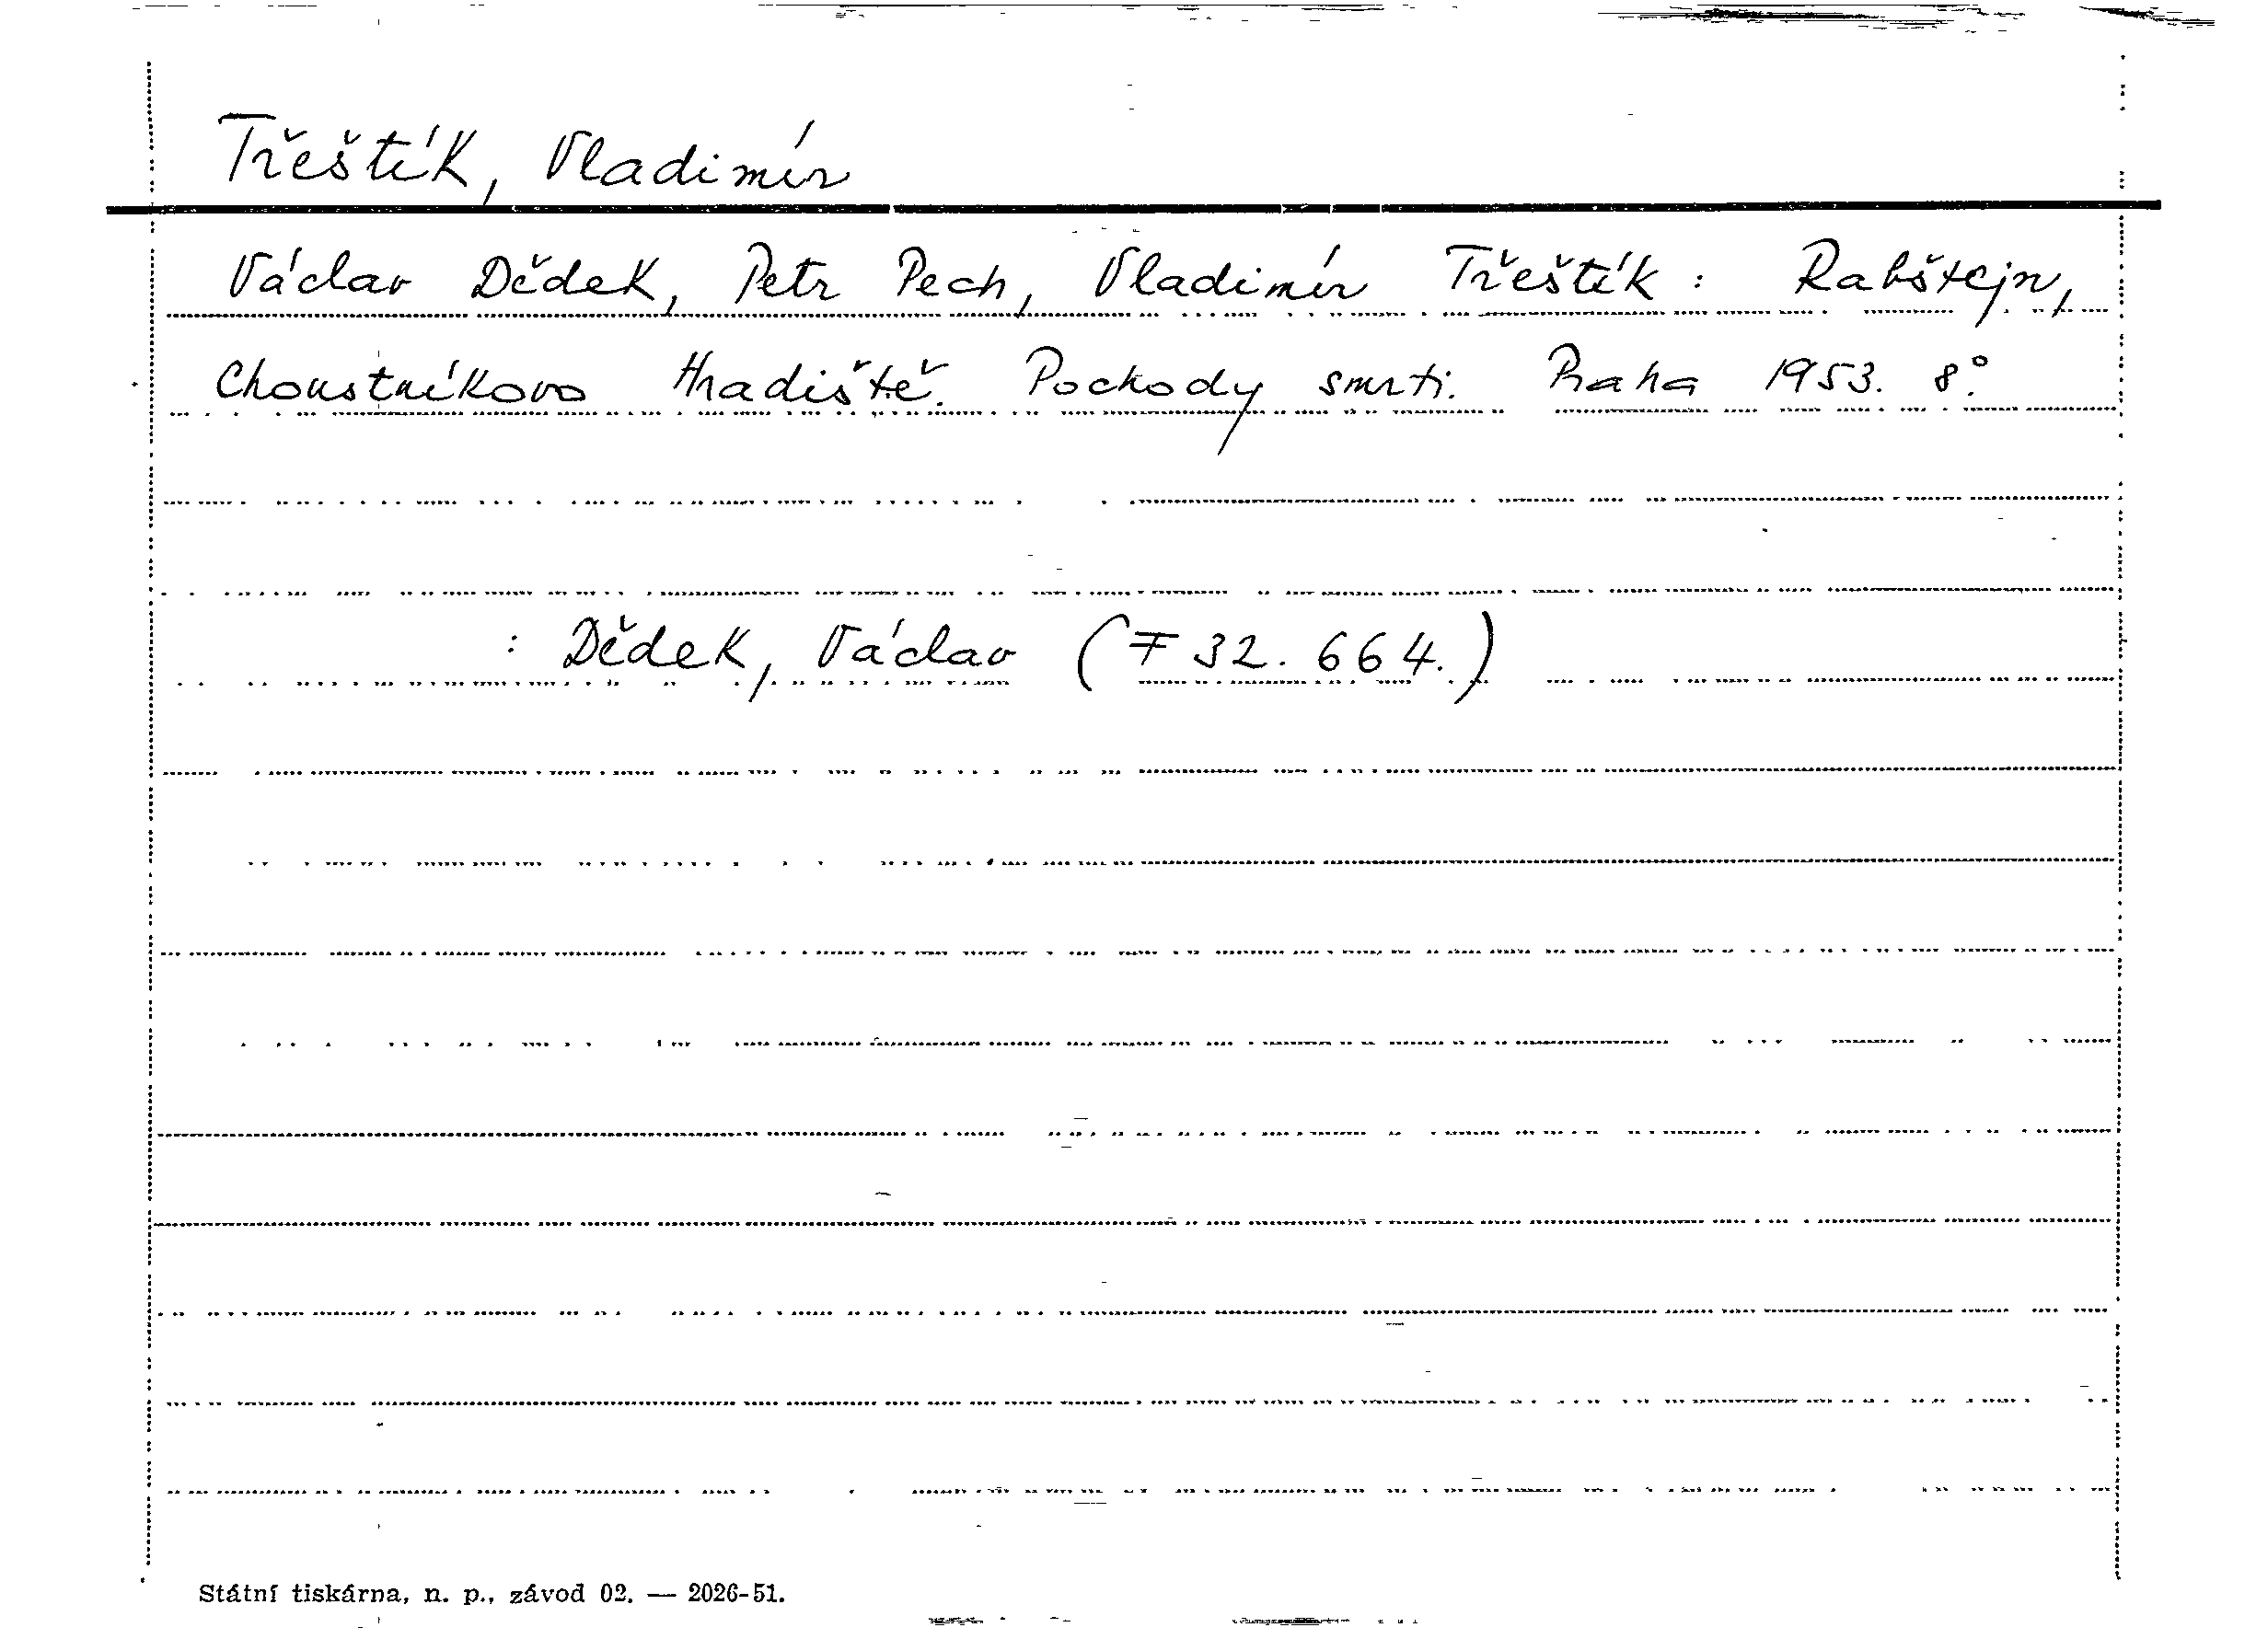 Třeštík, Vladimír
Václav Dědek, Petr Pech, Vladimír Třeštík : Rabštejn,
Choustníkovo Hradiště. Pochody smrti. Praha 1953. 8°.
: Dědek, Václav (F 32. 664.)
Státní tiskárna, n. p., závod 02. — 2026-51.